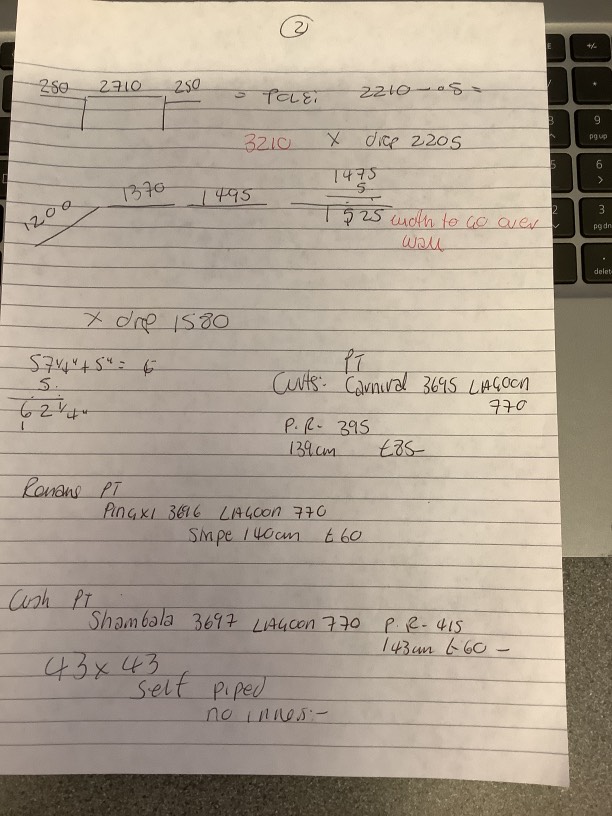 2
250 2710 250 = POLE: 2210 - .05 =
3210 x drop 2205
1200 1370 1495 1475
5
1525 width to go over
wall
x drop 1580
57 1/4" + 5" = 6
5.
62 1/4"
1
PT
Curts:- Carnival 3695 LAGOON
770
P.R- 395
139cm £85-
Romans PT
Pingxi 3696 LAGOON 770
Stripe 140cm £60
Cush PT
Shambala 3697 LAGOON 770 P.R- 415
143cm £60 -
43 x 43
self piped
no inners:-
+/-
9
pg up
6
3
pg dn
delete